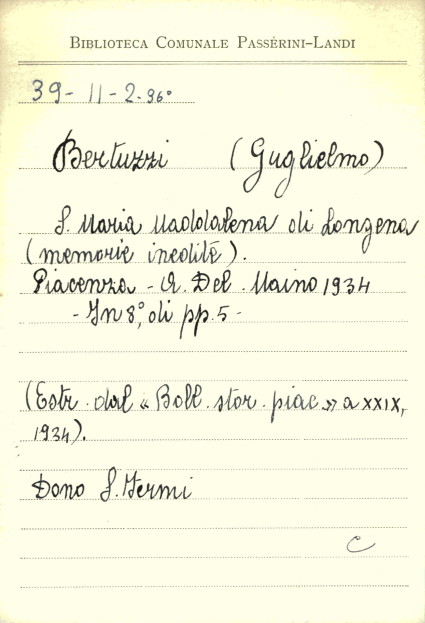 BIBLIOTECA COMUNALE PASSERINI-LANDI
39-11-2-96°
Bertuzzi (Guglielmo)
S. Maria Maddalena di Longena
(memorie inedite).
Piacenza - A. Del Maino 1934
- In 8°, di pp. 5 -
(Estr. dal « Boll. stor. piac » a XXIX,
1934).
Dono S. Fermi
C